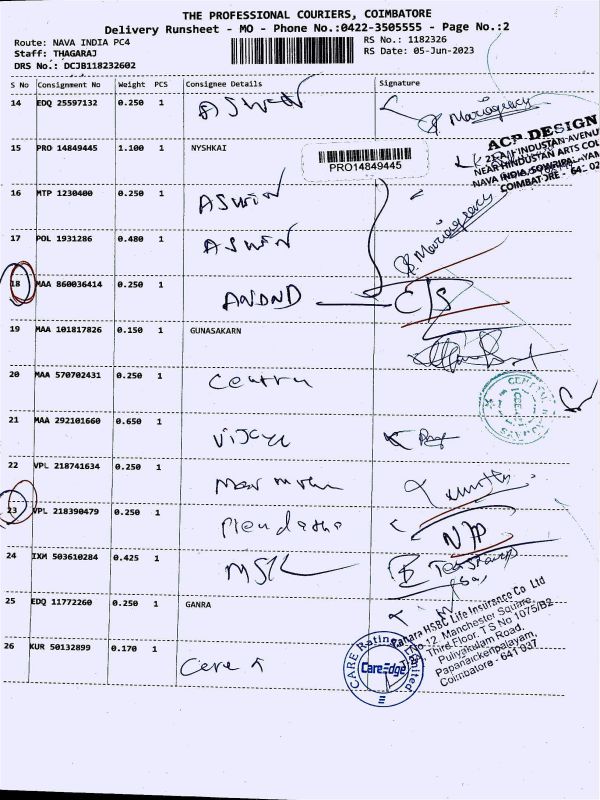 THE PROFESSIONAL COURIERS, COIMBATORE
Delivery Runsheet - MO - Phone No.:0422-3505555 - Page No.:2
Route: NAVA INDIA PC4
RS No.: 1182326
Staff: THAGARAJ
RS Date: 05-Jun-2023
DRS No.: DCJB118232602
S No Consignment No Weight PCS Consignee Details Signature
14 EDQ 25597132 0.250 1 ASWIN
15 PRO 14849445 1.100 1 NYSHKAI
PRO14849445
ACP DESIGN
NEAR HINDUSTAN ARTS COL
NAVA INDIA, SOWRIPALAYAM
COIMBATORE - 641 02
16 MTP 1230400 0.250 1 ASWIN
17 POL 1931286 0.480 1 ASWIN
18 MAA 860036414 0.250 1 ANAND
19 MAA 101817826 0.150 1 GUNASAKARN
20 MAA 570702431 0.250 1
21 MAA 292101660 0.650 1 Vijaya
22 VPL 218741634 0.250 1
23 VPL 218390479 0.250 1
24 IXM 503610284 0.425 1 MSK
25 EDQ 11772260 0.250 1 GANRA
Canara HSBC Life Insurance Co Ltd
No. 12, Manchester Square,
Third Floor, T S No 1075/B2
Puliyakulam Road,
Papanaickenpalayam,
Coimbatore - 641 037
26 KUR 50132899 0.170 1 Care
CARE Ratings Limited
CareEdge